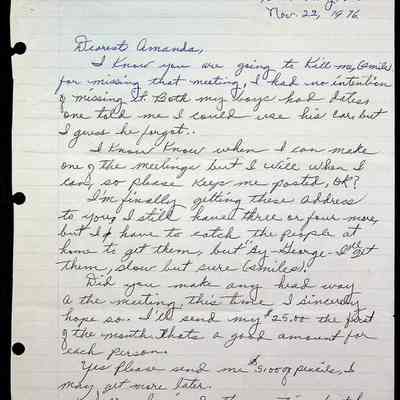 Nov. 22, 1976
Dearest Amanda,
I know you are going to kill me, (smile)
for missing that meeting, I had no intention
of missing it. Both my boys had dates
one told me I could use his car, but
I guess he forgot..
I know know when I can make
one of the meetings but I will when I
can, so please keep me posted, OK?
I'm finally getting these address
to you, I still have three or four more,
but I have to catch the people at
home to get them, but "By-George-I'll get
them, slow but sure (smiles).
Did you make any head way
a the meeting, this time I sincerely
hope so. I'll send my $25.00 the first
of the month. Thats a good amount for
each person.
Yes Please send me $5.00 of pencils, I
may get more later.